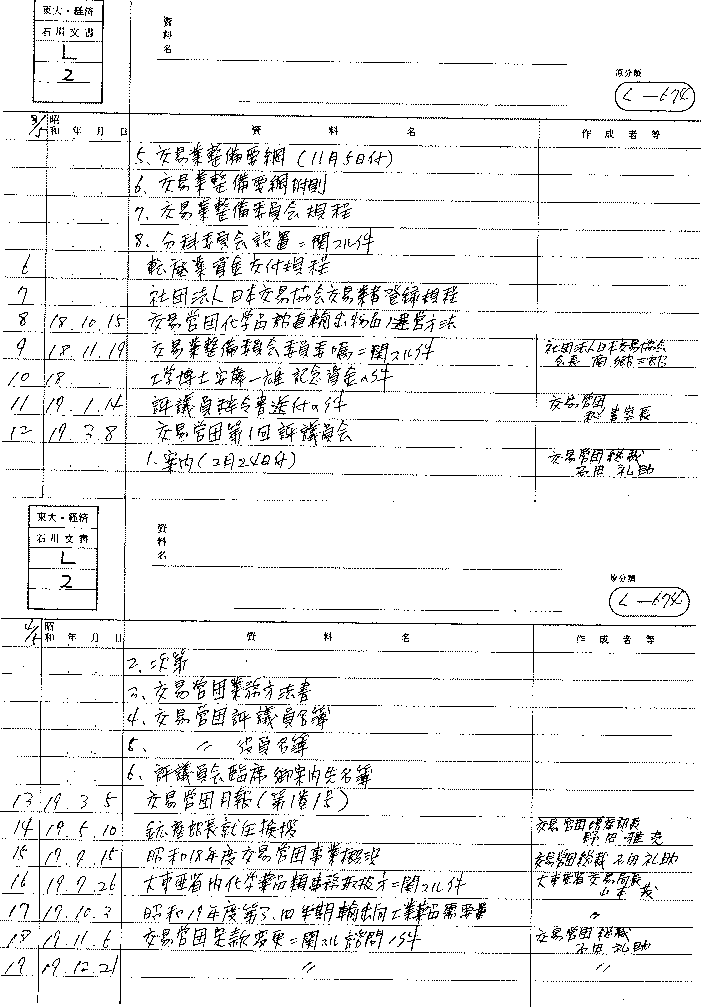 東大・経済
石川文書
L
2
資料名
原分類
L-674
3/5 昭和 年 月 日 資 料 名 作成者等
5. 交易業整備要綱 (11月5日付)
6. 交易業整備要綱附則
7. 交易業整備委員会規程
8. 分科委員会設置ニ関スル件
6 転廃業資金交付規程
7 社団法人日本交易協会交易業者登録規程
8 18. 10. 15 交易営団化学品部直輸出物品ノ運営方法
9 18. 11. 19 交易業整備委員会委員委嘱ニ関スル件 社団法人日本交易協会 会長 南郷三郎
10 18 工学博士安藤一雄記念資金の件
11 19. 1. 14 評議員辞令書送付の件 交易営団
12 19. 3. 8 交易営団第1回評議員会
1. 案内 (2月24日付) 交易営団総裁 石田礼助
東大・経済
石川文書
L
2
資料名
原分類
L-674
4/5 昭和 年 月 日 資 料 名 作成者等
2. 次第
3. 交易営団業務方法書
4. 交易営団評議員名簿
5. 〃 役員名簿
6. 評議員会臨席御案内先名簿
13 19. 3. 5 交易営団月報 (第1巻1号)
14 19. 5. 10 部長就任挨拶 交易営団
15 19. 7. 15 昭和18年度交易営団事業概況 交易営団総裁 石田礼助
16 19. 7. 26 大東亜省内化学薬品類事務取扱方ニ関スル件 大東亜省交易局長
17 19. 10. 3 昭和19年度第3、四半期輸出向工業薬品需要量 〃
18 19. 11. 6 交易営団定款変更ニ関スル諮問ノ件 交易営団総裁 石田礼助
19 19. 12. 21 〃 〃